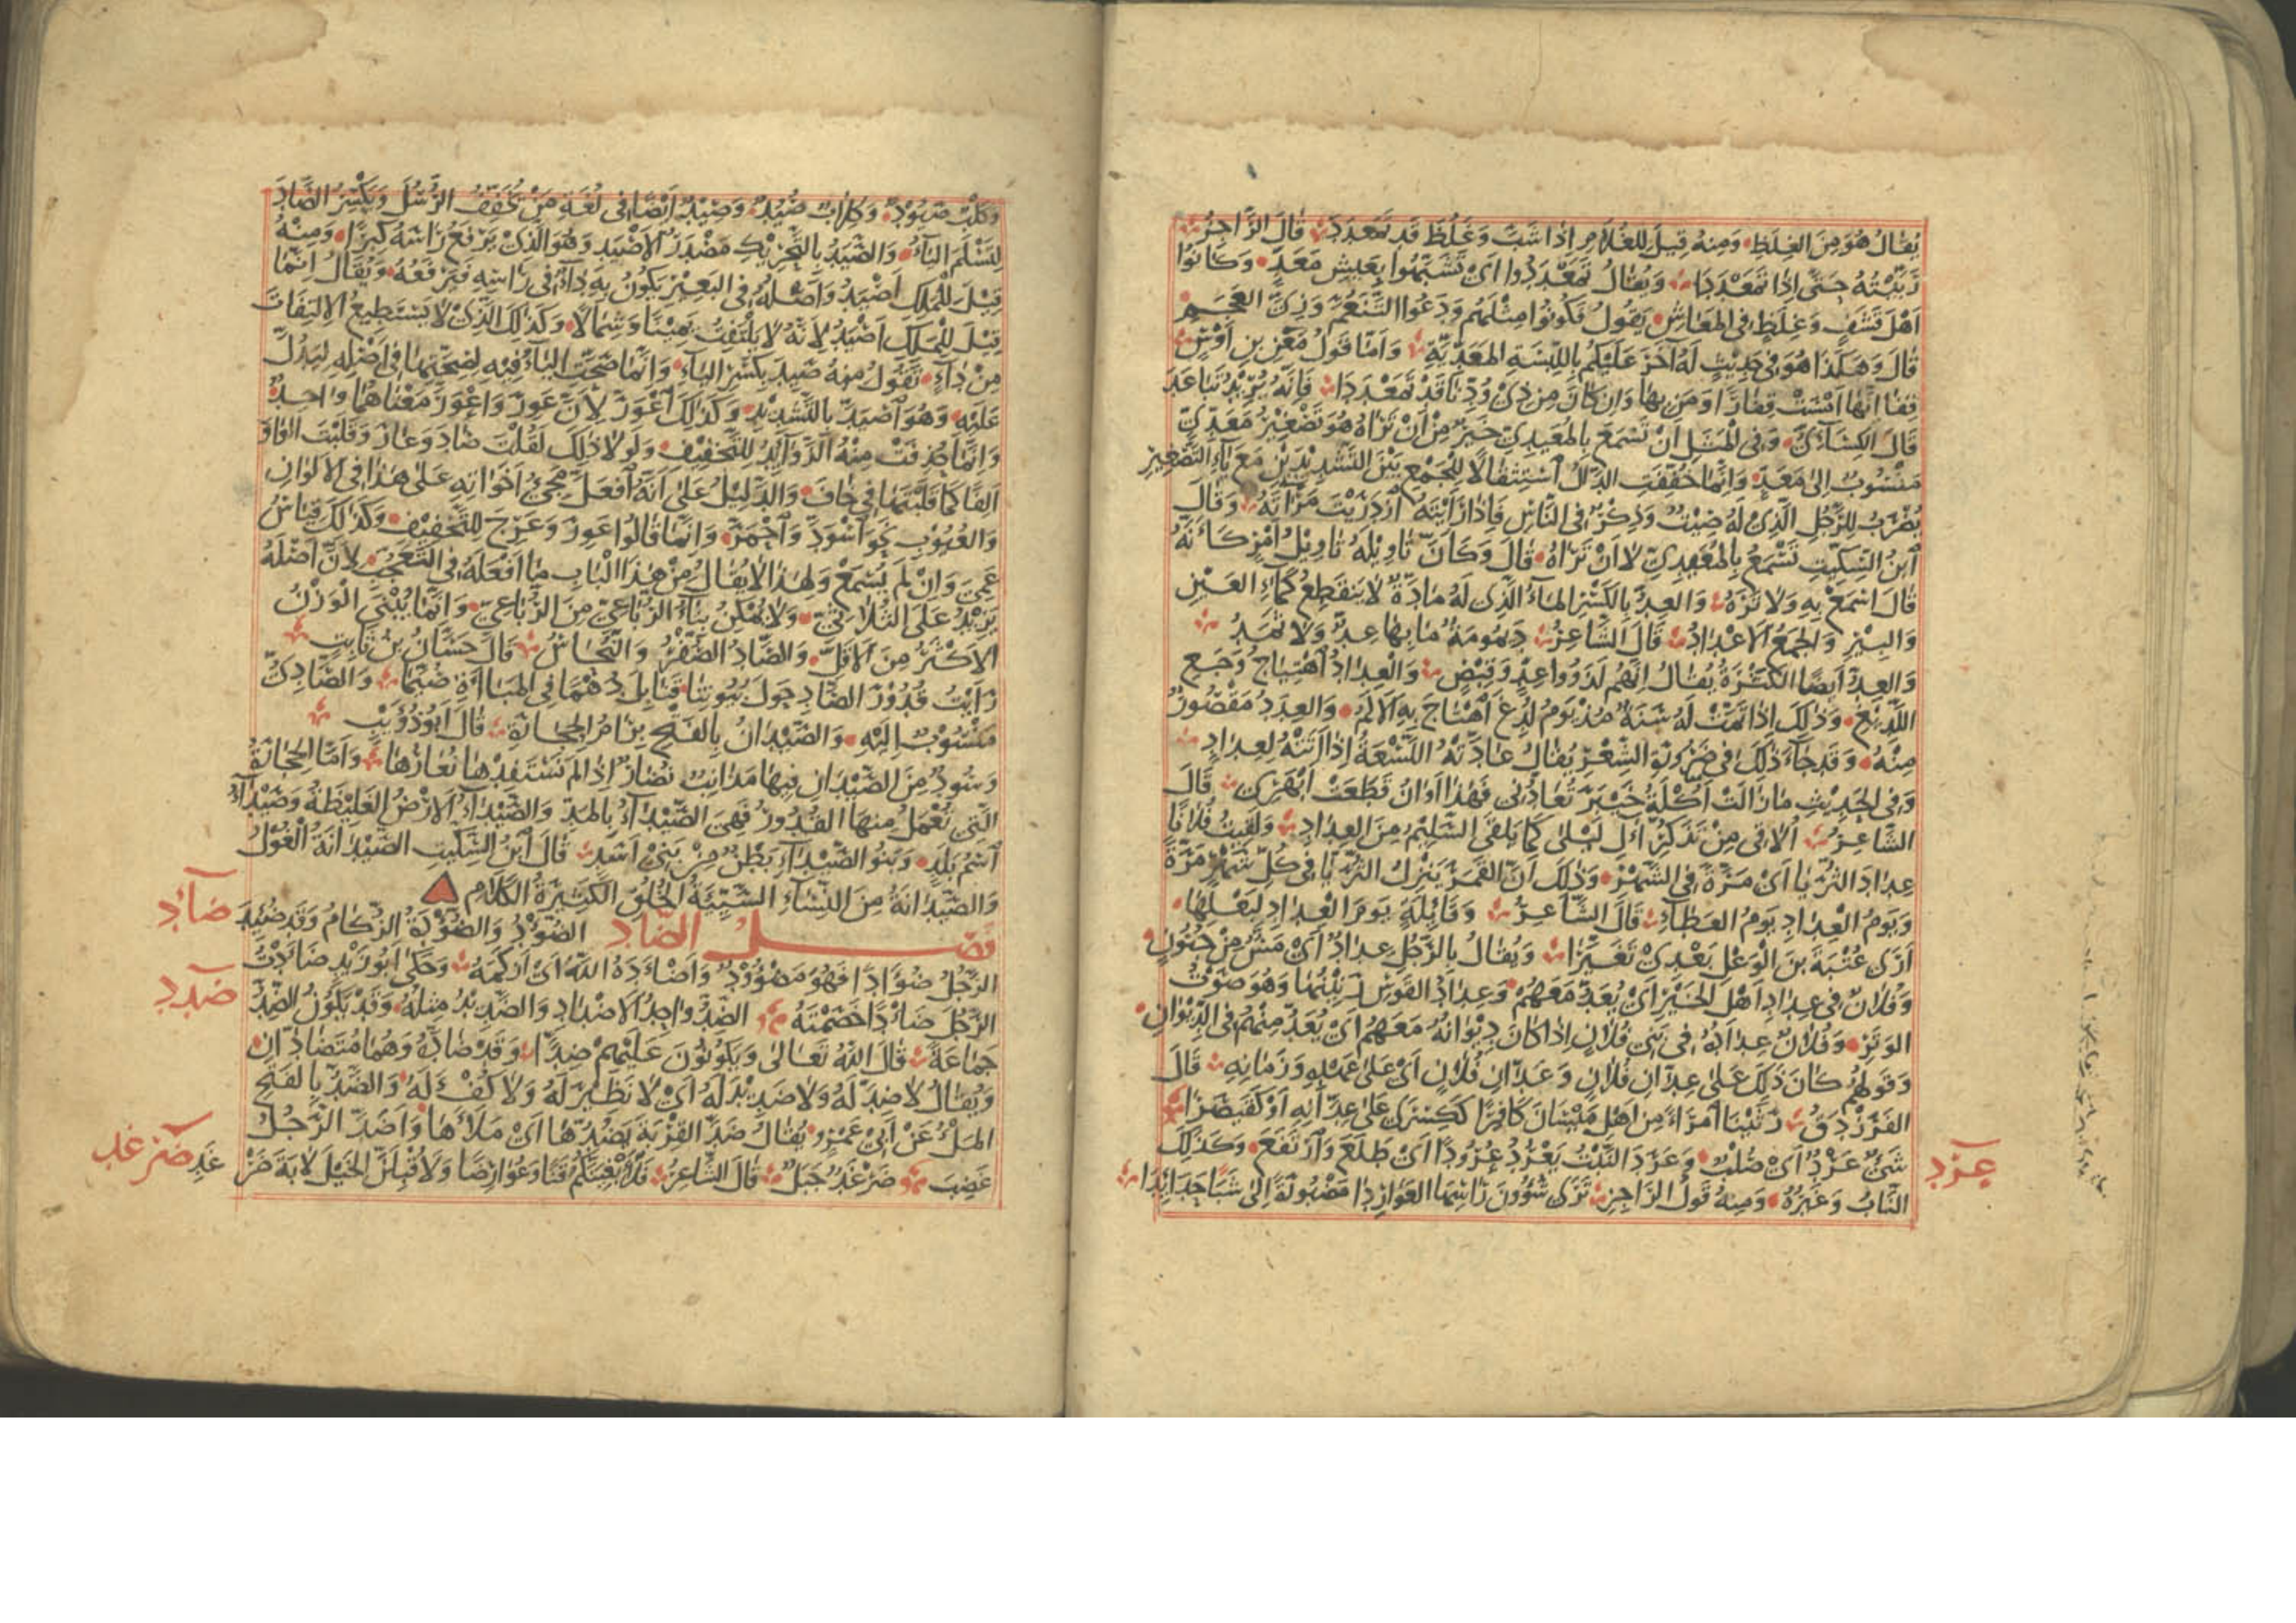 يُقالُ هُوَ مِنَ الغِلَظِ وَمِنهُ قِيلَ لِلغُلامِ اِذا شَبَّ وَغَلُظَ قَد تَمَعْدَدَ قالَ الرَّاجِزُ
رَبَّيْتُهُ حَتّى اِذا تَمَعْدَدَا وَيُقالُ تَمَعْدَدُوا اَىْ تَشَبَّهُوا بِعَيشِ مَعَدٍّ وَكانُوا
اَهْلَ قَشَفٍ وَغِلَظٍ فِى المَعاشِ يَقُولُ فَكُونُوا مِثْلَهُم وَدَعُوا التَّنَعُّمَ وَزِىَّ العَجَمِ
قالَ وَهكَذا هُوَ فى حَدِيثٍ لَهُ آخَرَ عَلَيْكُم بِاللِّبْسَةِ المَعَدِّيَّةِ وَاَمّا قَولُ مَعْنِ بنِ اَوْسٍ
قِفا اِنَّها اَمْسَتْ قِفارًا وَمَن بِها وَاِن كانَ مِن ذِى وُدِّنا قَدْ تَمَعْدَدَا فَاِنَّهُ يُرِيْدُ تَباعَدَ
قالَ الكِسَآئِىُّ وَفِى المَثَلِ اَنْ تَسْمَعَ بِالمُعَيدِىِّ خَيرٌ مِنْ اَنْ تَراهُ هُوَ تَصْغِيْرُ مَعَدِّىٍّ
مَنْسُوبٌ اِلى مَعَدٍّ وَاِنَّما خُفِّفَتِ الدّالُ اسْتِثْقالًا لِلْجَمْعِ بَيْنَ التَّشْدِيْدَيْنِ مَعَ يآءِ التَّصْغِيْرِ
يُضْرَبُ لِلرَّجُلِ الَّذِىْ لَهُ صِيْتٌ وَذِكْرٌ فِى النَّاسِ فَاِذا رَاَيْتَهُ ازْدَرَيْتَ مَرْآتَهُ وَقالَ
ابْنُ السِّكِّيْتِ تَسْمَعُ بِالمُعَيدِىِّ لا اَنْ تَراهُ قالَ وَكَانَ تَاوِيْلَهُ تَاوِيْلُ اَمْرٍ كَاَنَّهُ
قالَ اسْمَعْ بِهِ وَلا تَرَهُ وَالعِدُّ بِالكَسْرِ المآءُ الَّذِى لَهُ مادَّةٌ لا يَنقَطِعُ كَمآءِ العَيْنِ
وَالبِئرِ وَالجَمْعُ الاَعْدادُ قالَ الشّاعِرُ دَيمُومَةٌ ما بِها عِدٌّ وَلا ثَمَدُ
وَالعِدُّ اَيضًا الكَثْرَةُ يُقالُ اِنَّهُم لَذَوُو عِدٍّ وَقِبْصٍ وَالعِدادُ اهْتِياجُ وَجَعِ
اللَّدِيْغِ وَذلِكَ اِذا تَمَّتْ لَهُ سَنَةٌ مُذ يَوم لُدِغَ اهْتاجَ بِهِ الاَلَمُ وَالعِدَدُ مَقْصُورٌ
مِنْهُ وَقَد جآءَ ذلِكَ فى ضَرُورَةِ الشِّعْرِ يُقالُ عادَّتْهُ اللَّسْعَةُ اِذا اَتَتْهُ لِعِدادٍ
وَفِى الحَدِيْثِ ما زالَتْ اُكْلَةُ خَيْبَرَ تُعادُّنى فَهذا اَوانُ قَطَعَتْ اَبْهَرِى قالَ
الشّاعِرُ اُلاقِى مِنْ تَذَكُّرِ آلِ لَيْلى كَما يَلقَى السَّلِيْمُ مِنَ العِدادِ وَلَقِيتُ فُلانًا
عِدادَ الثُّرَيّا اَىْ مَرَّةً فِى الشَّهْرِ وَذلِكَ اَنَّ القَمَرَ يَنْزِلُ الثُّرَيّا فى كُلِّ شَهْرٍ مَرَّةً
وَيَومُ العِدادِ يَومُ العَطاءِ قالَ الشّاعِرُ وَقائِلَةٍ يَومَ العِدادِ لِبَعْلِها
اَرى عُتْبَةَ بنَ الوَعْلِ بَعْدِىْ تَغَيَّرا وَيُقالُ بِالرَّجُلِ عِدادٌ اَىْ مَسٌّ مِنْ جُنُونٍ
وَفُلانٌ فى عِدادِ اَهْلِ الخَيْرِ اَىْ يُعَدُّ مَعَهُمْ وَعِدادُ القَوْسِ رَنِيْنُها وَهُوَ صَوْتُ
الوَتَرِ وَفُلانٌ عِدادُهُ فى بَنِى فُلانٍ اِذا كانَ دِيْوانُهُ مَعَهُم اَىْ يُعَدُّ مِنْهُم فِى الدِّيْوانِ
وَقَولُهُم كانَ ذلِكَ عَلى عِدّانِ فُلانٍ وَعَدّانِ فُلانٍ اَىْ عَلى عَهْدِهِ وَزَمانِهِ قالَ
الفَرَزْدَقُ رَثَيْنا امْرَاً مِن اَهْلِ مَيْسانَ كافِرًا كَكِسْرى عَلى عِدّانِهِ اَوْ كَقَيصَرَا
شَىْءٌ عَرْدٌ اَىْ صُلْبٌ وَعَرَدَ النَّبْتُ يَعْرُدُ عُرُودًا اَىْ طَلَعَ وَارْتَفَعَ وَكَذلِكَ
عرد
النّابُ وَغَيْرُهُ وَمِنهُ قَولُ الرّاجِزِ تَرى شُؤُونَ رَاسِها العَوارِدا مَضْبُورَةً اِلى شَبا حَدائِدَا
وَكَلْبٌ صَيُودٌ وَكِلابٌ صُيُدٌ وَصِيْدٌ اَيْضًا فى لُغَةِ مَنْ يُخَفِّفُ الرُّسُلَ وَيَكْسِرُ الصّادَ
لِتَسْلَمَ اليآءُ وَالصَّيَدُ بِالتَّحْرِيْكِ مَصْدَرُ الاَصْيَدِ وَهُوَ الَّذِىْ يَرْفَعُ رَاسَهُ كِبْرًا وَمِنْهُ
قِيْلَ لِلْمَلِكِ اَصْيَدُ وَاَصْلُهُ فِى البَعِيْرِ يَكُونُ بِهِ دآءٌ فى رَاسِهِ فَيَرْفَعُهُ وَيُقالُ اِنَّما
قِيْلَ لِلْمَلِكِ اَصْيَدُ لِاَنَّهُ لا يَلْتَفِتُ يَمِيْنًا وَشِمالًا وَكَذلِكَ الَّذِىْ لا يَسْتَطِيعُ الاِلتِفاتَ
مِنْ دآءٍ تَقُولُ مِنهُ صَيِدَ بِكَسْرِ اليآءِ وَاِنَّما صَحَّتِ اليآءُ فِيْهِ لِصِحَّتِها فى اَصْلِهِ لِيَدُلَّ
عَلَيْهِ وَهُوَ اصْيَدَّ بِالتَّشْدِيْدِ وَكَذلِكَ اعْوَرَّ لِاَنَّ عَوِرَ وَاعْوَرَّ مَعْناهُما واحِدٌ
وَاِنَّما حُذِفَتْ مِنْهُ الزَّوآئِدُ لِلتَّخْفِيْفِ وَلَولا ذلِكَ لَقُلْتَ صادَ وَعارَ وَقَلَبْتَ الواوَ
اَلِفًا كَما قَلَبْتَها فى خافَ وَالدَّلِيْلُ عَلى اَنَّهُ افْعَلَّ مَجِىْءُ اَخَواتِهِ عَلى هذا فِى الاَلوانِ
وَالعُيُوبِ نَحوَ اسْوَدَّ وَاحْمَرَّ وَاِنَّما قالُوا عَوِرَ وَعَرِجَ لِلتَّخْفِيْفِ وَكَذلِكَ قِياسُ
عَمِىَ وَاِنْ لَم يُسْمَعْ وَلِهذا لا يُقالُ مِنْ هذا البابِ ما اَفْعَلَهُ فِى التَّعَجُّبِ لِاَنَّ اَصْلَهُ
يَزِيْدُ عَلَى الثُّلاثِىِّ وَلا يُمْكِنُ بِنآءُ الرُّباعِىِّ مِنَ الرُّباعِىِّ وَاِنَّما يُبْنَى الوَزْنُ
الاَكْثَرُ مِنَ الاَقَلِّ وَالصّادُ الصُّفْرُ وَالنُّحاسُ قالَ حَسّانُ بنُ ثابِتٍ
رَاَيْتُ قُدُورَ الصّادِ حَولَ بُيُوتِنا قَنابِلَ دُهْمًا فِى المَباءَةِ صُيَّما وَالصّادِىُّ
مَنْسُوبٌ اِلَيْهِ وَالصَّيْدانُ بِالفَتْحِ بِرامُ الحِجارَةِ قالَ اَبُو ذُؤَيْبٍ
وَسُودٌ مِنَ الصَّيْدانِ فِيها مَذانِبٌ نُضارٌ اِذا لَم نَسْتَفِدْها نُعارُها وَاَمّا الحِجارَةُ
الَّتِى تُعْمَلُ مِنها القُدُورُ فَهِىَ الصَّيْدآءُ بِالمَدِّ وَالصَّيْدآءُ الاَرْضُ الغَلِيْظَةُ وَصَيْدآءُ
اسْمُ بَلَدٍ وَبَنُو الصَّيْدآءِ بَطْنٌ مِنْ بَنِى اَسَدٍ قالَ ابْنُ السِّكِّيتِ الصَّيْدانَةُ الغُوْلُ
وَالصَّيْدانَةُ مِنَ النِّسآءِ السَّيِّئَةُ الخُلُقِ الكَثِيرَةُ الكَلامِ
فصل الضّاد الضُّؤْدُ وَالضُّؤْدَةُ الزُّكامُ وَقَد ضُئِدَ
ضآد
الرَّجُلُ ضُؤَادًا فَهُوَ مَضْؤُوْدٌ وَاَضْاَدَهُ اللهُ اَىْ اَزْكَمَهُ وَحَكى اَبُو زَيدٍ ضَاَدْتُ
الرَّجُلَ ضَاْدًا خَصَمْتَهُ الضِّدُّ واحِدُ الاَضْدادِ وَالضَّدِيْدُ مِثلُهُ وَقَدْ يَكُوْنُ الضِّدُّ
ضدد
جَماعَةً قالَ اللهُ تَعالى وَيَكُونُونَ عَلَيْهِمْ ضِدًّا وَقَدْ ضادَّهُ وَهُما مُتَضادّانِ
وَيُقالُ لا ضِدَّ لَهُ وَلا ضَدِيْدَ لَهُ اَىْ لا نَظِيْرَ لَهُ وَلا كُفْءَ لَهُ وَالضَّدُّ بِالفَتْحِ
المَلْءُ عَنْ اَبِىْ عَمْرٍو يُقالُ ضَدَّ القِرْبَةَ يَضُدُّها اَىْ مَلَاَها وَاَضَدَّ الرَّجُلُ
غَضِبَ ضَرْغَدٌ جَبَلٌ قالَ الشّاعِرُ فَلَاَبْغِيَنَّكُمُ قَنًا وَعُوارِضًا وَلَاُقْبِلَنَّ الخَيْلَ لابَةَ ضَرْغَدِ
ضرغد